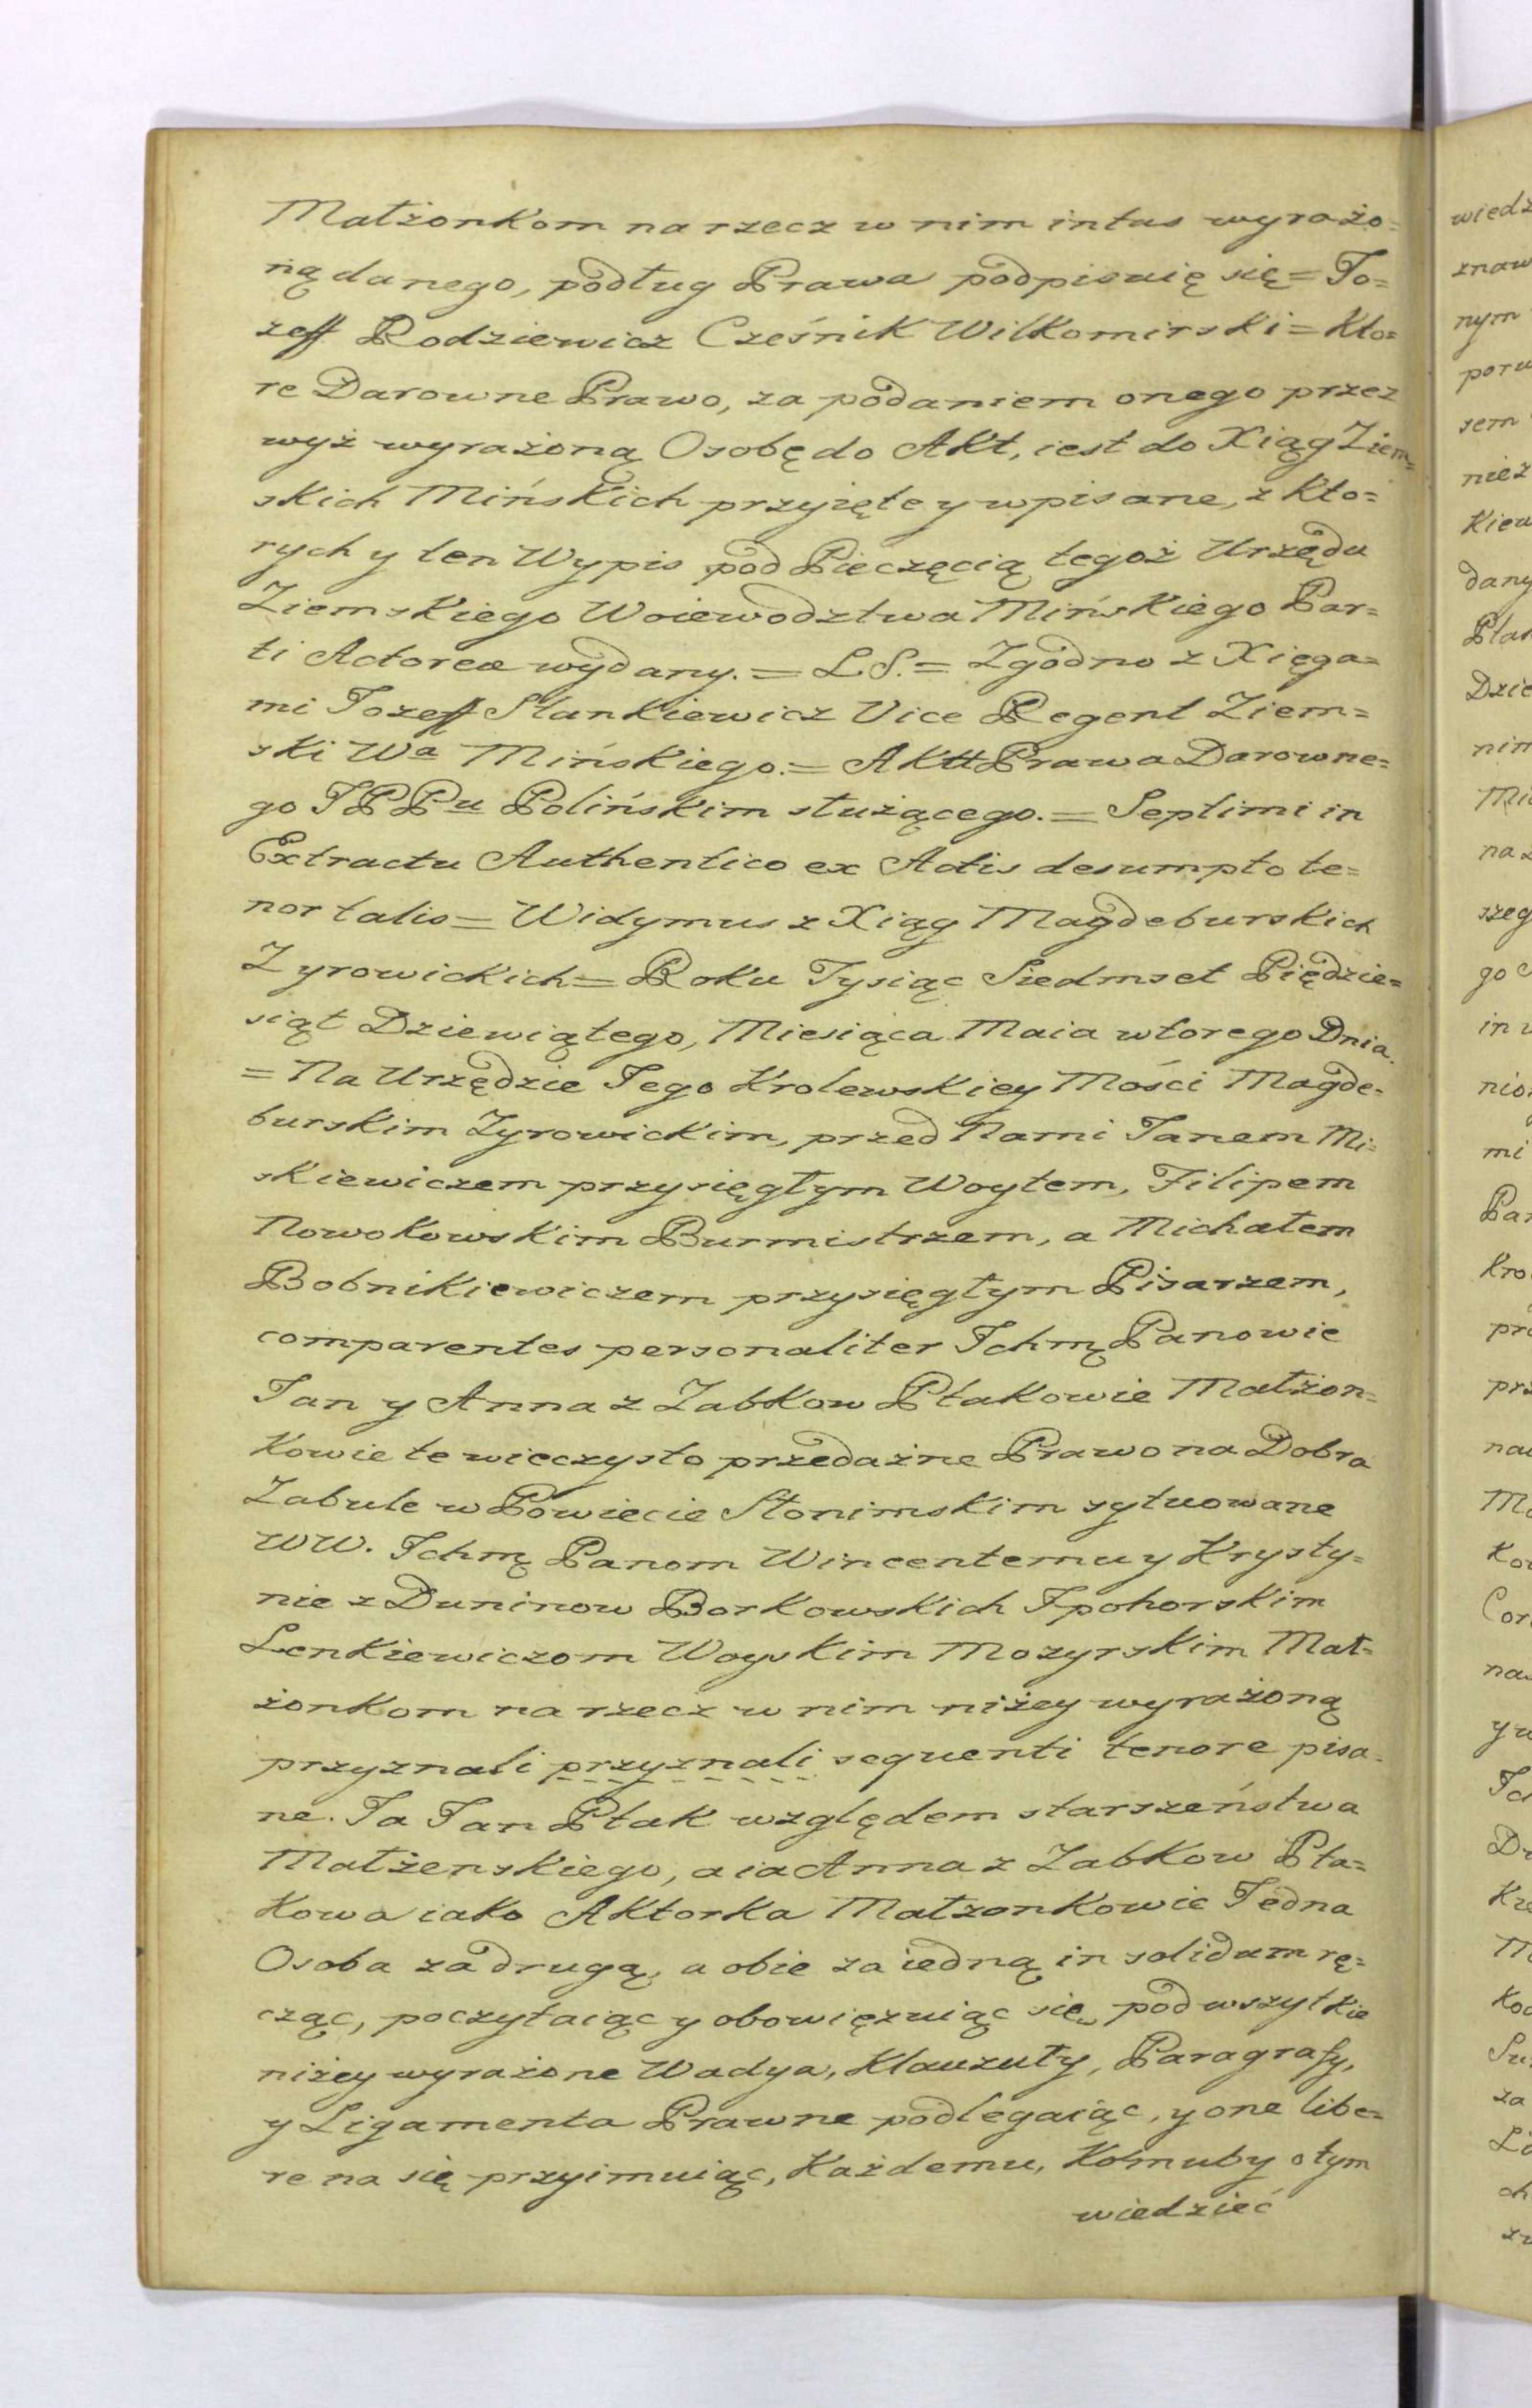 Małżonkom na rzecz w nim intus wyrażo=
ną danego, podług Prawa podpisuię się = Jo=
zeff Rodziewicz Cześnik Wiłkomirski = Kto=
re Darowne Prawo, za podaniem onego przez
wyż wyrażoną Osobę do Akt, iest do Xiąg Ziem=
skich Mińskich przyięte y wpisane, z Kto=
rych y ten Wypis pod Pieczęcią tegoż Urzędu
Ziemskiego Woiewodztwa Mińskiego Par=
ti Actoreæ wydany. = L.S. = Zgodno z Xięga=
mi Jozeff Stankiewicz Vice Regent Ziem=
ski Wa Mińskiego. = Aktt Prawa Darowne=
go JPPu Polińskim służącego. = Septimi in
Extractu Authentico ex Actis desumpto te=
nor talis = Widymus z Xiąg Magdeburskich
Zyrowickich = Roku Tysiąc Siedmset Piędzie=
siąt Dziewiątego, Miesiąca Maia wtorego Dnia.
= Na Urzędzie Jego Krolewskiey Mości Magde=
burskim Zyrowickim, przed Nami Janem Mi=
skiewiczem przysięgłym Woytem, Filipem
Nowokowskim Burmistrzem, a Michałem
Bobnikiewiczem przysięgłym Pisarzem,
comparentes personaliter Ichmą Panowie
Jan y Anna z Zabkow Ptakowie Małżon=
Kowie te wieczysto przedażne Prawo na Dobra
Zabule w Powiecie Słonimskim sytuowane
WW. Ichmą Panom Wincentemu y Krysty=
nie z Duninow Borkowskich Ipohorskim
Lenkiewiczom Woyskim Mozyrskim Mał=
żonkom na rzecz w nim niżey wyrażoną
przyznali przyznali sequenti tenore pisa=
ne. Ja Jan Ptak względem starszeństwa
Małżenskiego, a ia Anna z Zabkow Pta=
Kowa iako Aktorka Małzonkowie Jedna
Osoba za drugą, a obie za iedną in solidum rę=
cząc, poczytaiąc y obowięzuiąc się, pod wszytkie
niżey wyrażone Wadya, Klauzuły, Paragrafy,
y Ligamenta Prawne podlegaiąc, y one libe=
re na się przyimuiąc, Każdemu, Komuby o tym
wiedzieć